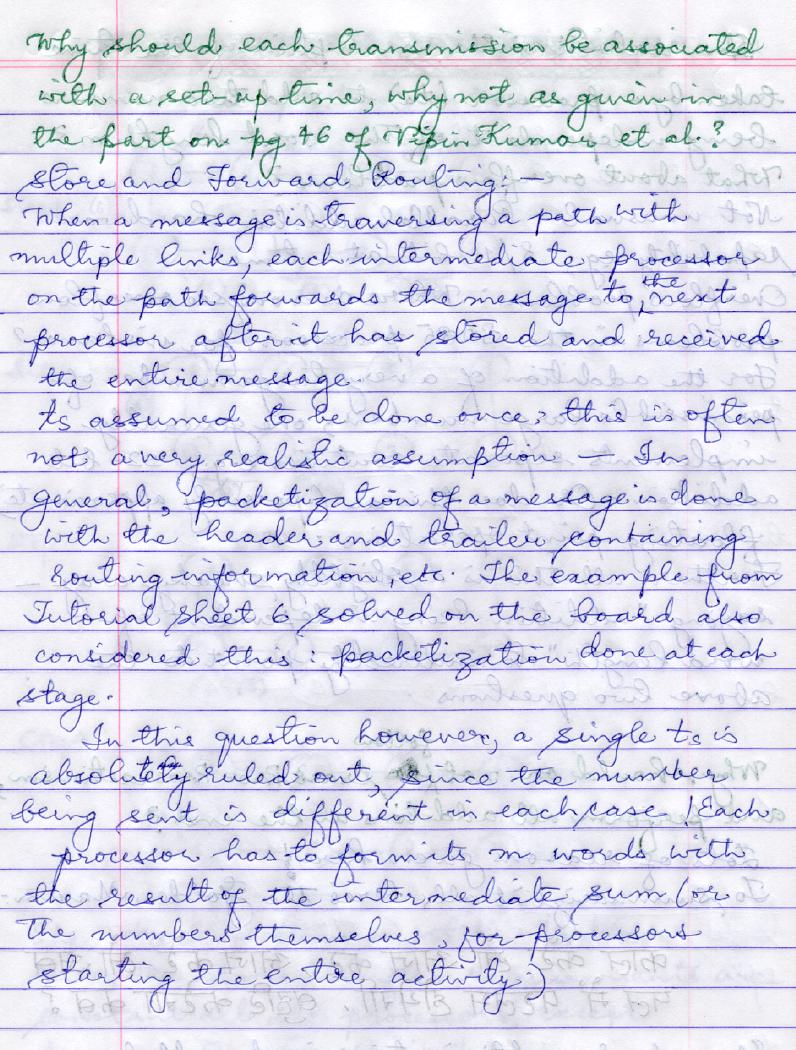 Why should each transmission be associated
with a set-up time, why not as given in
the part on pg 46 of Vipin Kumar et al.?
Store and Forward Routing: —
When a message is traversing a path with
multiple links, each intermediate processor
on the path forwards the message to the next
processor after it has stored and received
the entire message.
ts assumed to be done once: this is often
not a very realistic assumption — In
general, packetization of a message is done
with the header and trailer containing
routing information, etc. The example from
Tutorial Sheet 6 solved on the board also
considered this: packetization done at each
stage.
In this question however, a single ts is
absolutely ruled out, since the number
being sent is different in each case! Each
processor has to form its m words with
the result of the intermediate sum (or
the numbers themselves, for processors
starting the entire activity.)